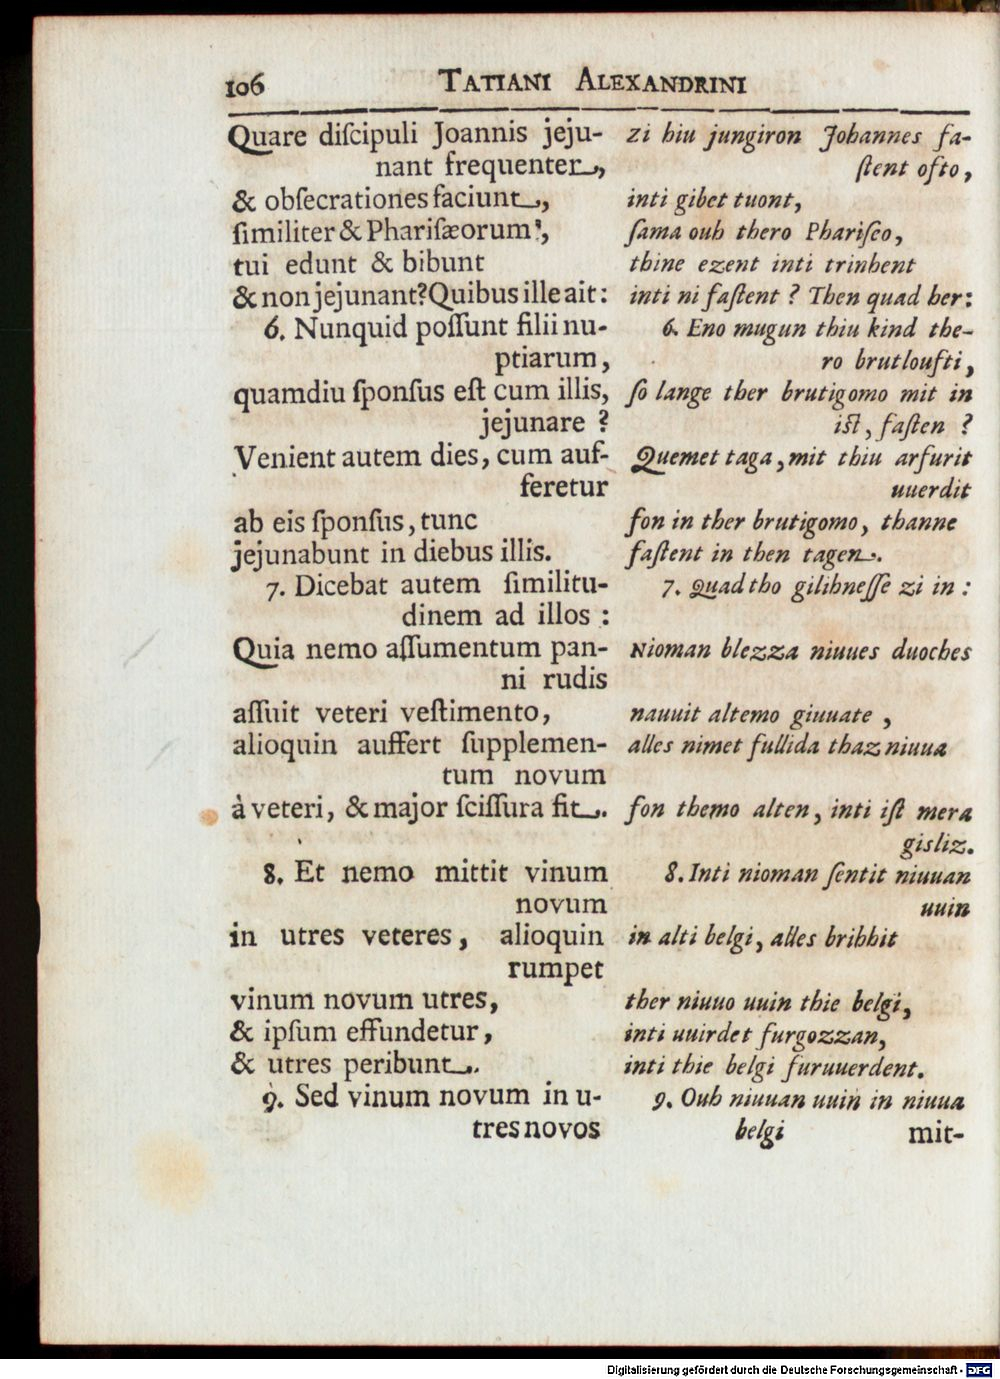 106 TATIANI ALEXANDRINI
Quare diſcipuli Joannis jeju-
nant frequenter,
& obſecrationes faciunt,
ſimiliter & Phariſæorum,
tui edunt & bibunt
& non jejunant? Quibus ille ait:
6. Nunquid poſſunt filii nu-
ptiarum,
quamdiu ſponſus eſt cum illis,
jejunare ?
Venient autem dies, cum auf-
feretur
ab eis ſponſus, tunc
jejunabunt in diebus illis.
7. Dicebat autem ſimilitu-
dinem ad illos :
Quia nemo aſſumentum pan-
ni rudis
aſſuit veteri veſtimento,
alioquin auffert ſupplemen-
tum novum
à veteri, & major ſciſſura fit.
8. Et nemo mittit vinum
novum
in utres veteres, alioquin
rumpet
vinum novum utres,
& ipſum effundetur,
& utres peribunt.
9. Sed vinum novum in u-
tres novos
zi hiu jungiron Johannes fa-
ſtent ofto,
inti gibet tuont,
ſama ouh thero Phariſeo,
thine ezent inti trinhent
inti ni faſtent ? Then quad her:
6. Eno mugun thiu kind the-
ro brutloufti,
ſo lange ther brutigomo mit in
iſt, faſten ?
Quemet taga, mit thiu arfurit
uuerdit
fon in ther brutigomo, thanne
faſtent in then tagen.
7. Quad tho gilihneſſe zi in :
Nioman blezza niuues duoches
nauuit altemo giuuate ,
alles nimet fullida thaz niuua
fon themo alten, inti iſt mera
gisliz.
8. Inti nioman ſentit niuuan
uuin
in alti belgi, alles bribhit
ther niuuo uuin thie belgi,
inti uuirdet furgozzan,
inti thie belgi furuuerdent.
9. Ouh niuuan uuin in niuua
belgi mit-
Digitalisierung gefördert durch die Deutsche Forschungsgemeinschaft - DFG